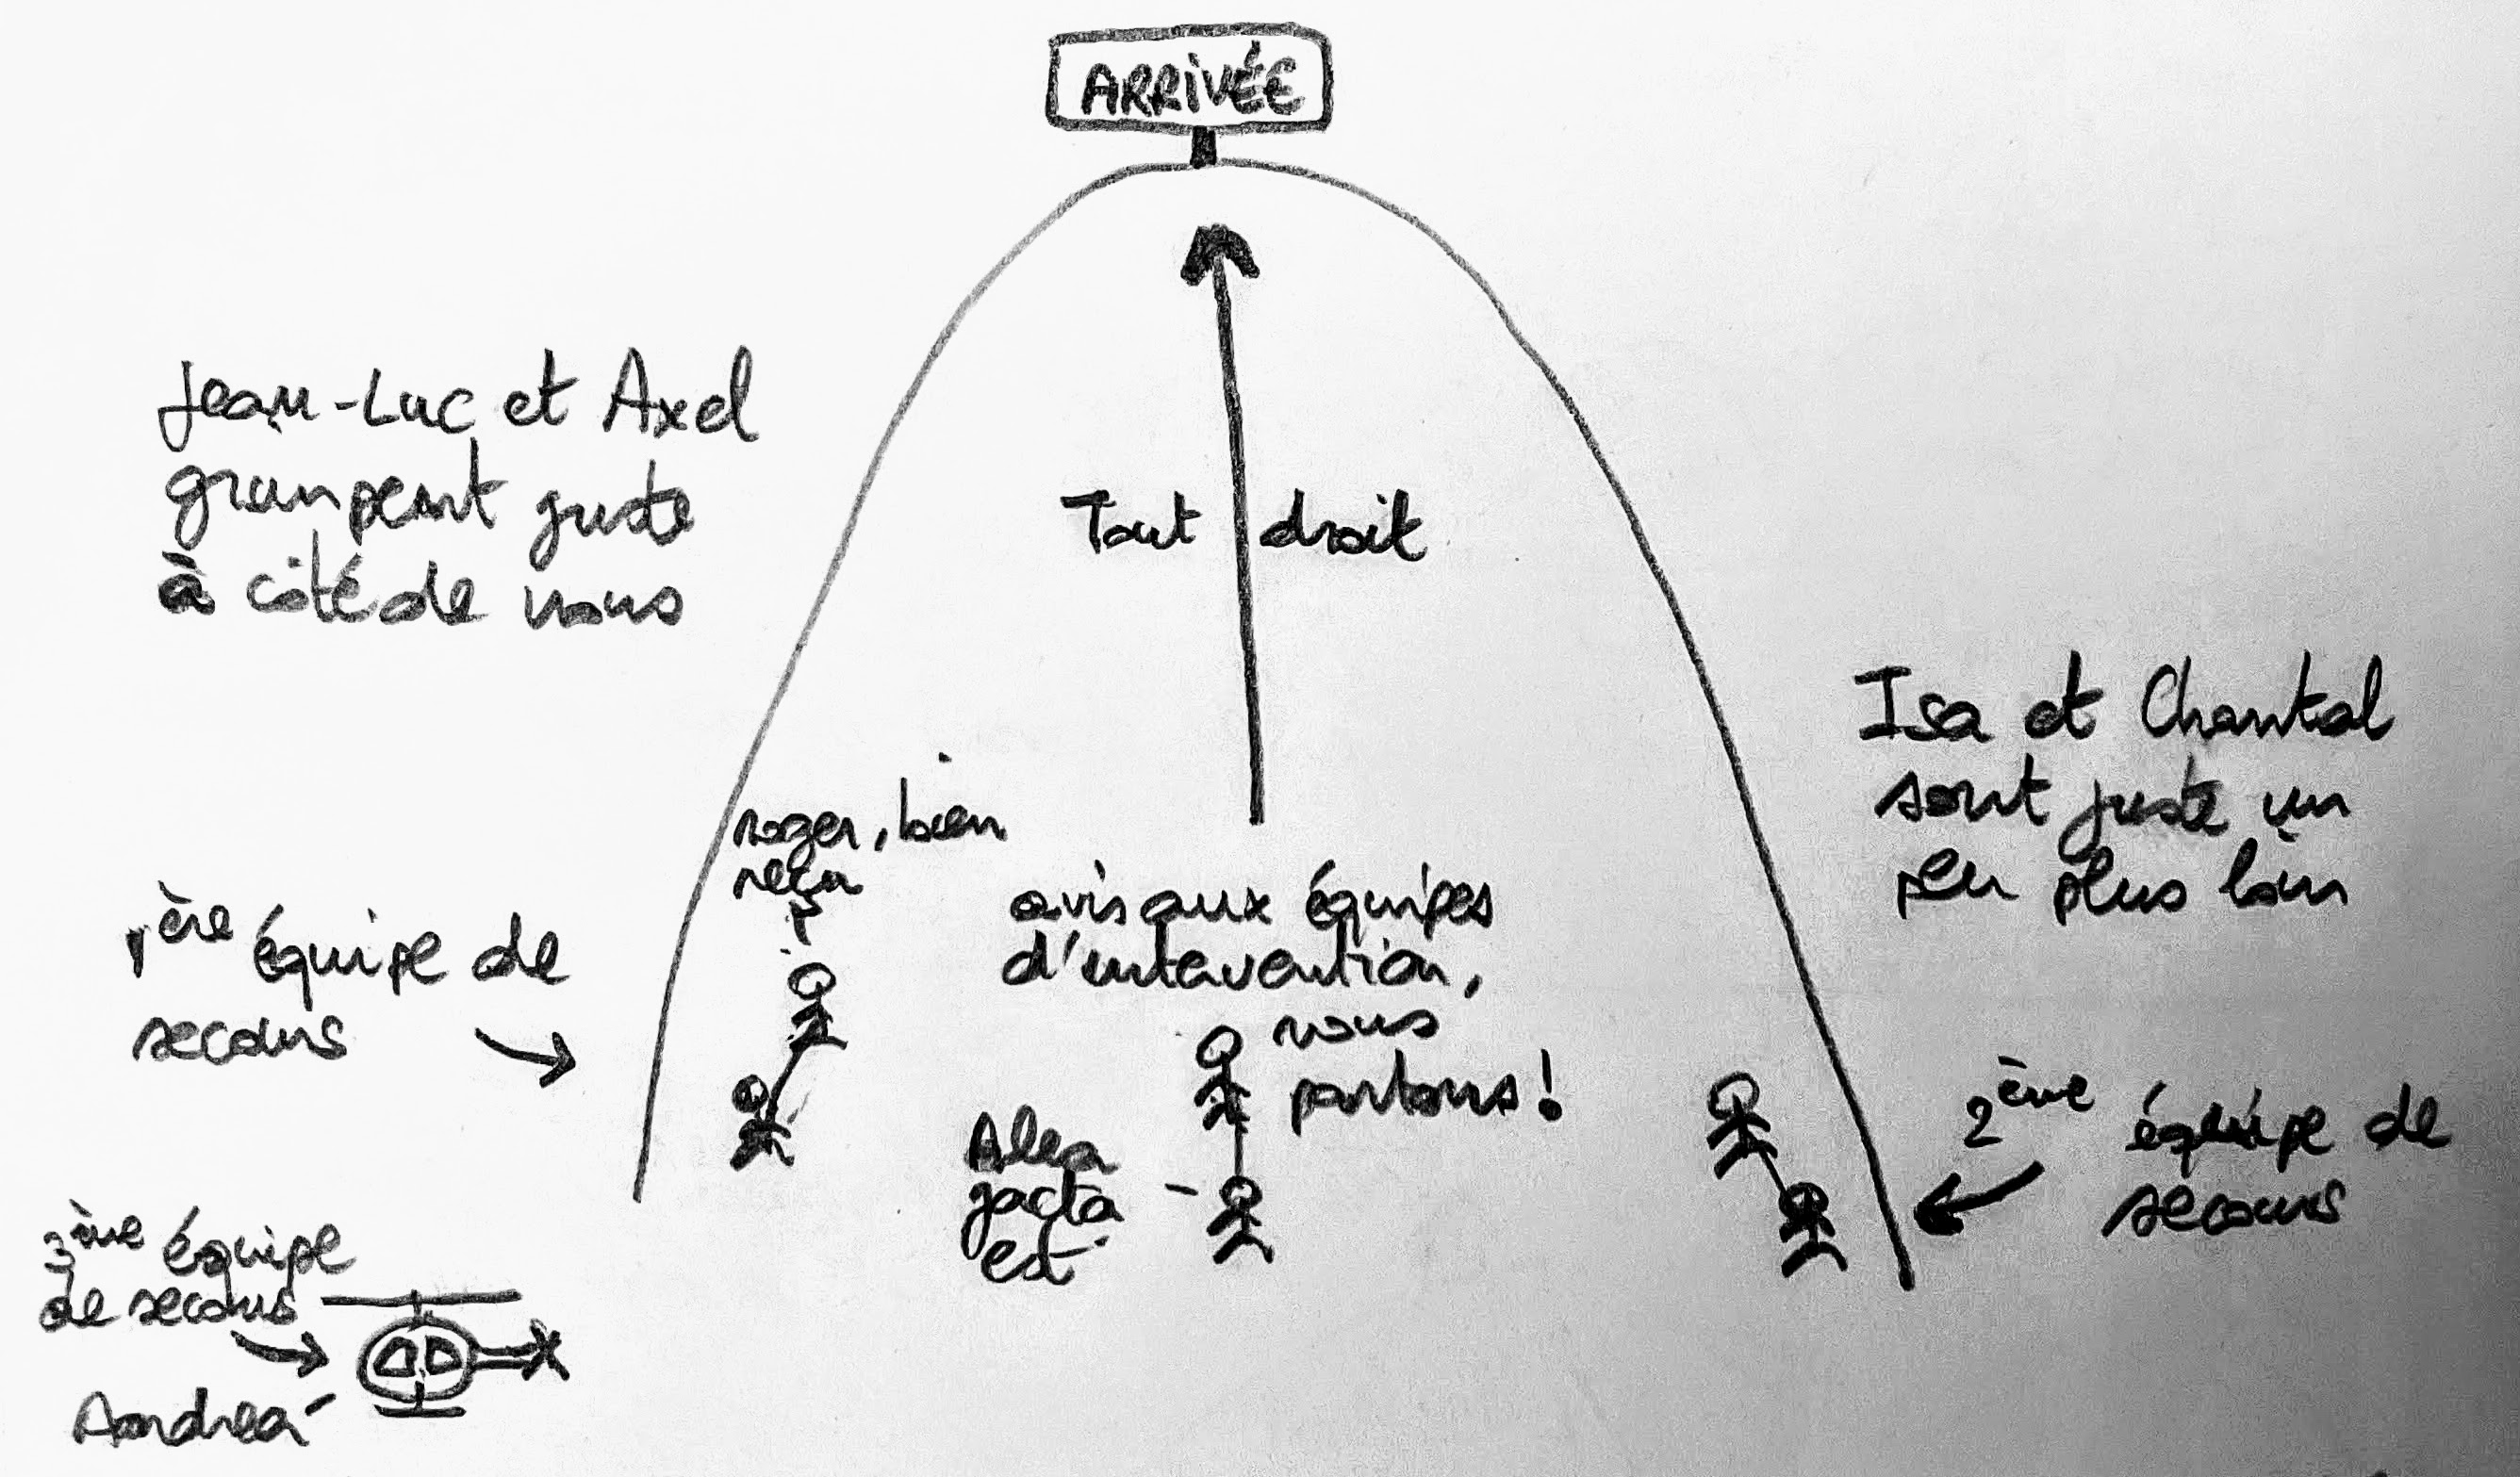 ARRIVÉE
Jean-Luc et Axel
grimpent juste
à côté de nous
Tout droit
Isa et Chantal
sont juste un
peu plus loin
roger, bien
reçu
avis aux équipes
d'intervention,
nous
partons !
1ère équipe de
secours
Alea
jacta
est
2ème équipe de
secours
3ème équipe
de secours
Andrea